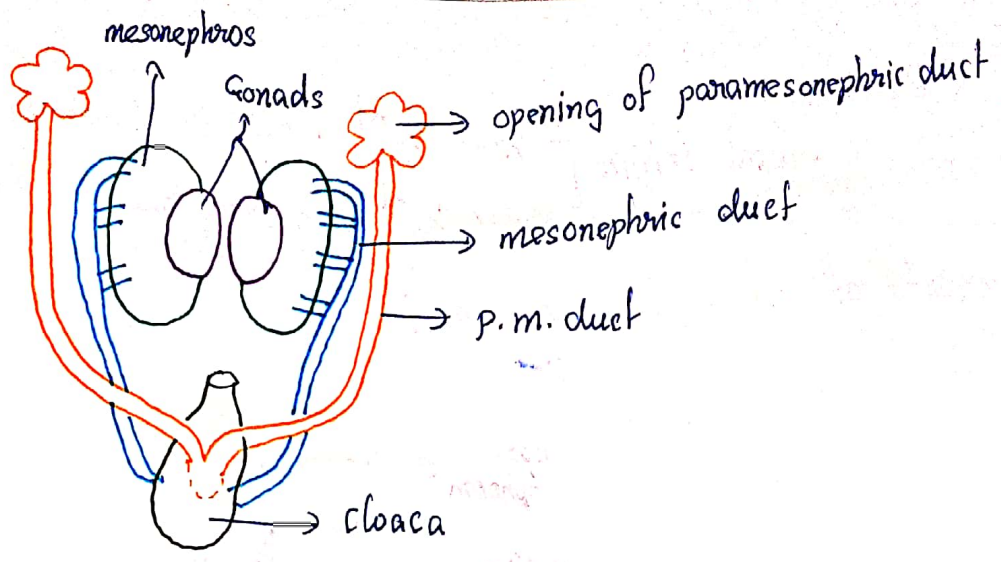 mesonephros
Gonads
opening of paramesonephric duct
mesonephric duct
p.m. duct
cloaca